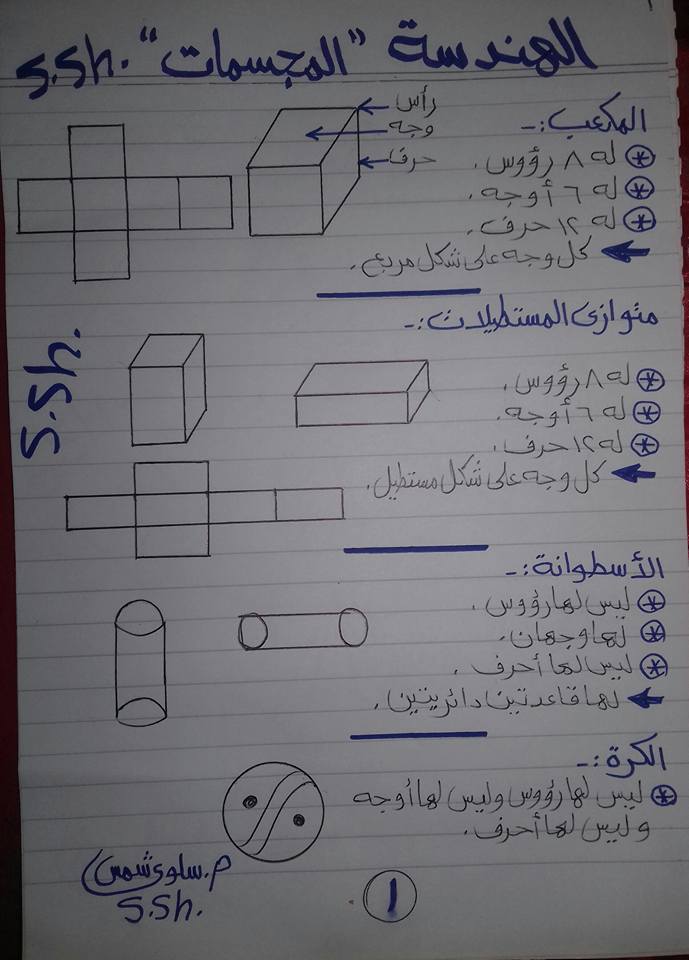 الهندسة "المجسمات" S.Sh.
المكعب:-
رأس
وجه
حرف
* له ٨ رؤوس.
* له ٦ أوجه.
* له ١٢ حرف.
كل وجه على شكل مربع.
متوازى المستطيلات:-
S.Sh.
* له ٨ رؤوس.
* له ٦ أوجه.
* له ١٢ حرف.
كل وجه على شكل مستطيل.
الأسطوانة:-
* ليس لها رؤوس.
* لها وجهان.
* ليس لها أحرف.
لها قاعدتين دائريتين.
الكرة:-
* ليس لها رؤوس وليس لها أوجه
وليس لها أحرف.
م. سلوى شمس
S.Sh.
١